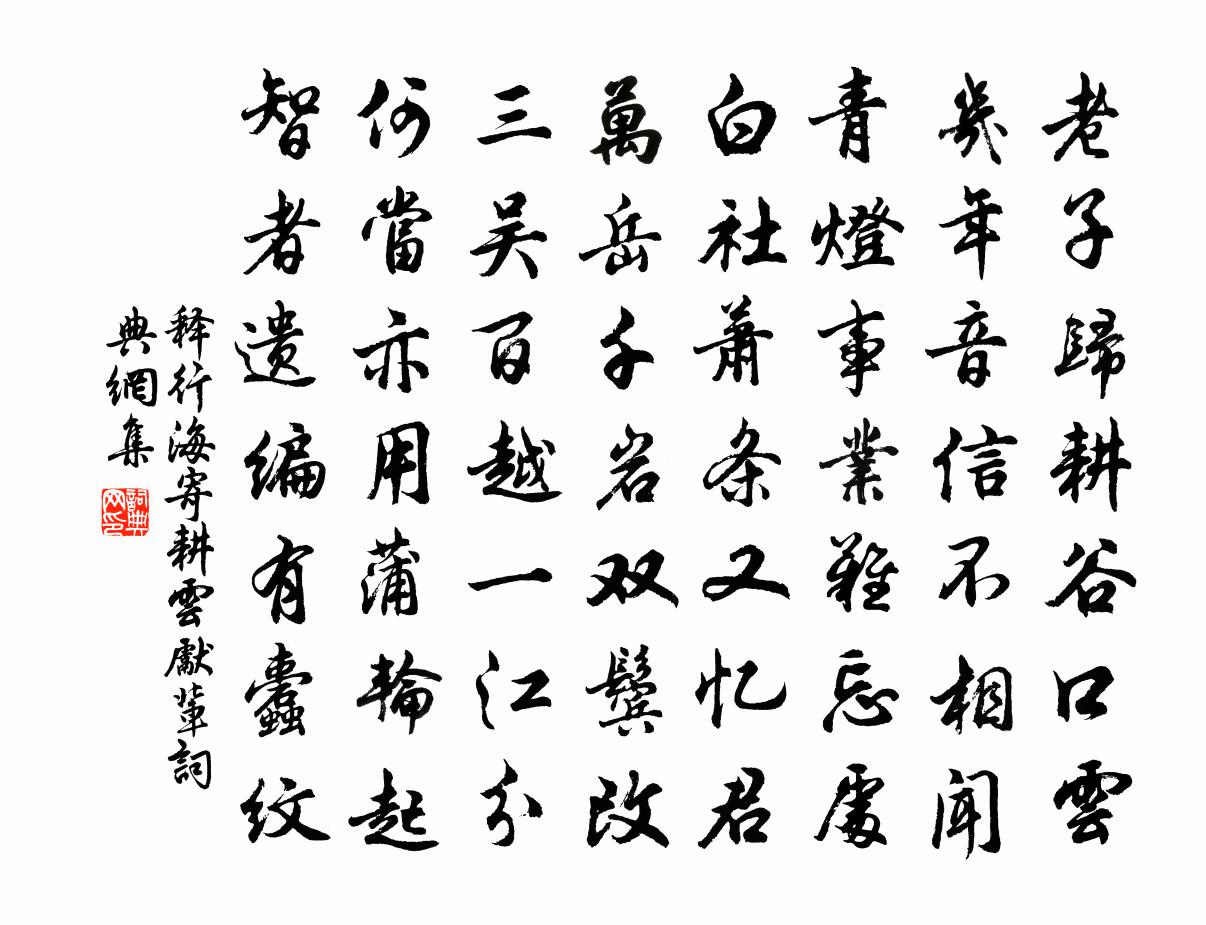 老子歸耕谷口雲
幾年音信不相聞
青燈事業難忘處
白社蕭条又忆君
萬岳千岩双鬓改
三吴百越一江分
何當亦用蒲輪起
智者遗编有蠹纹
释行海寄耕雲獻葦詞
典網集
詞典
网印